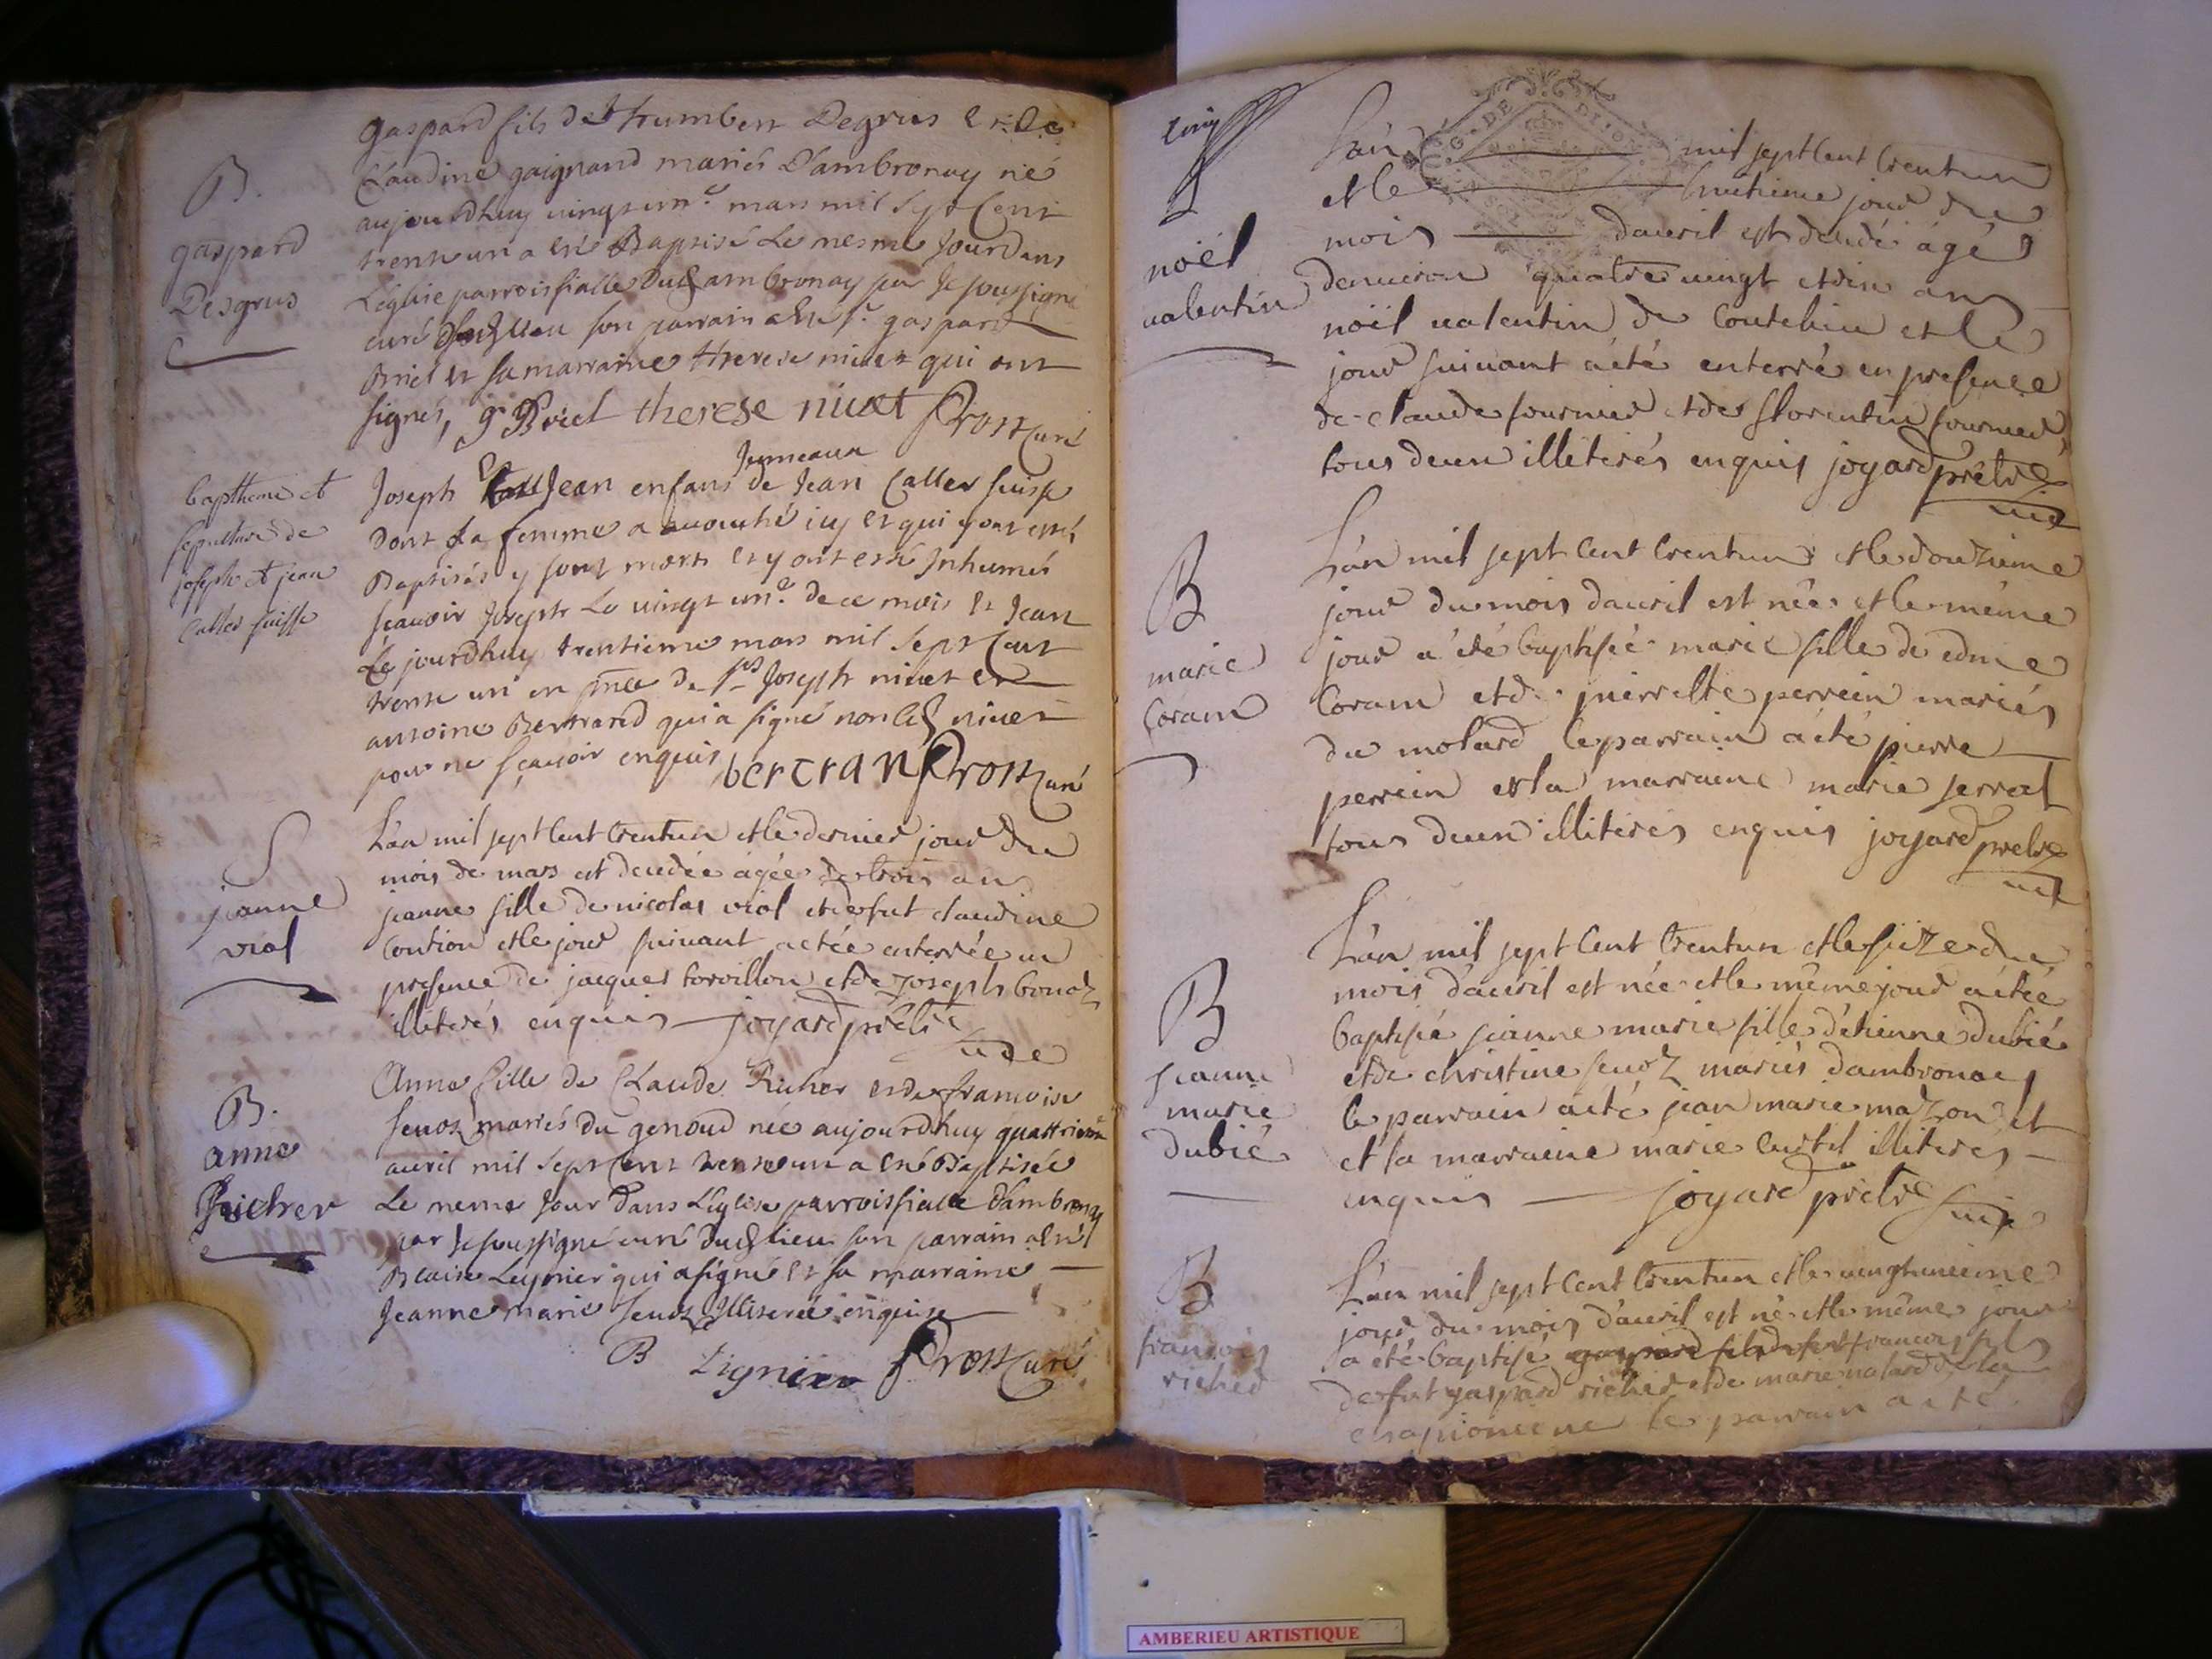 B.
gaspard
Desgrus
gaspard fils de humbert Degrus et de
Claudine gaignard mariés d'ambronay né
aujourdhuy vingt un.e mars mil sept Cent
trente un a esté Baptisé Le mesme Jour dans
L'église parroissialle Dud ambronay par Je soussigné
curé dud Lieu son parrain a esté sr. gaspard
Briel et sa marraine therese nivet qui ont
signés, g Briel therese nivet Prost Curé
baptheme et
sepulture de
joseph et jean
Caller suisse
Jumeaux
Joseph et Jean enfans de Jean Caller suisse
Dont La femme a accouché icy et qui y ont esté
Baptisés y sont morts et y ont esté Inhumés
sçavoir Joseph Le vingt un.e de ce mois et Jean
Le jourdhuy trentieme mars mil sept Cent
trente un en pnce de Joseph nivet et
antoine Bertrand qui a signé non led nivet
pour ne sçavoir enquis bertran Prost Curé
S
jeanne
vial
L'an mil sept Cent trentun et le dernier jour du
mois de mars est decedée agée de trois ans
jeanne fille de nicolas vial et de fut claudine
Coution et le jour suivant a etée enterrée en
presence de jacques torvillon et de joseph bonaz
illiterés enquis joyard prêtre
vice
B.
anne
Richer
Anne fille de Claude Richer et de françoise
senoz mariés du genoud née aujourdhuy quattrieme
avril mil sept Cent trente un a esté Baptisée
Le meme Jour dans L'eglise parroissialle d'ambronay
par Je soussigné curé dud Lieu son parrain a esté
Blaise Leynier qui a signé et sa marraine
Jeanne marie senoz Illiterée enquise
B Lignier Prost Curé
cinq
S
noël
valentin
G. DE DIJON
L'an mil sept Cent trentun
et le huitieme jour du
mois d'avril est decedé agé
d'environ quatre vingt et dix ans
noël valentin de Coutelieu et le
jour suivant a été enterré en presence
de claude fournier et de florentin fournier
tous deux illiterés enquis joyard prêtre
vice
B
marie
Coram
L'an mil sept Cent trentun et le douzieme
jour du mois d'avril est née et le même
jour a été baptisée marie fille de edme
Coram et de pierrette perrein mariés
du molard le parrain a été pierre
perrein et la marraine marie serrat
tous deux illiterés enquis joyard prêtre
vice
B
jeanne
marie
dubié
L'an mil sept Cent trentun et le seize du
mois d'avril est née et le même jour a étée
baptisée jeanne marie fille d'étienne dubié
et de christine senoz mariés d'ambronay
le parrain a été jean marie mazon et
et la marraine marie curtil illiterés
enquis joyard prêtre vice
B
françois
richer
L'an mil sept Cent trentun et le vingtunieme
jour du mois d'avril est né et le même jour
a été baptisé gaspard fils de fut françois fils
de fut gaspard richer et de marie nalard de la
le parrain a été
AMBERIEU ARTISTIQUE